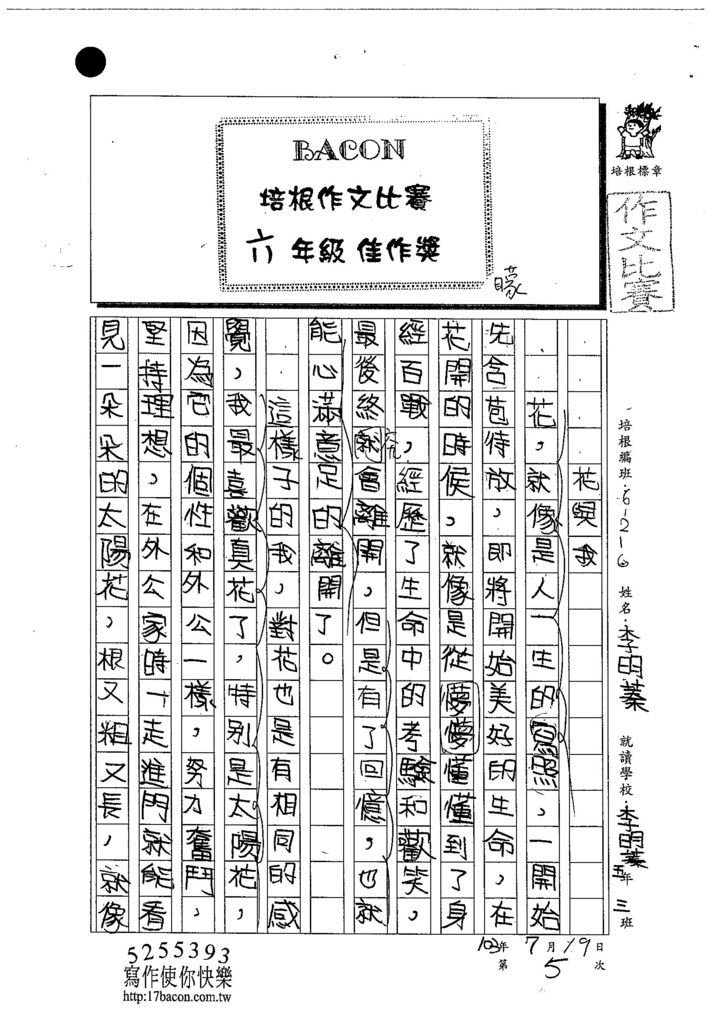 BACON
培根作文比賽
六年級 佳作獎
培根標章
作文比賽
培根編班：6-216 姓名：李明蓁 就讀學校：李明蓁 五年三班
花與我
花，就像是人一生的寫照，一開始
先含苞待放，即將開始美好的生命，在
矇
花開的時侯，就像是從懜懜懂懂到了身
經百戰，經歷了生命中的考驗和歡笑，
究
最後終就會離開，但是有了回憶，也就
能心滿意足的離開了。
這樣子的我，對花也是有相同的感
覺，我最喜歡真花了，特別是太陽花，
因為它的個性和外公一樣，努力奮鬥，
堅持理想，在外公家時一走進門就能看
見一朵朵的太陽花，根又粗又長，就像
103年7月19日
第5次
5255393
寫作使你快樂
http:17bacon.com.tw